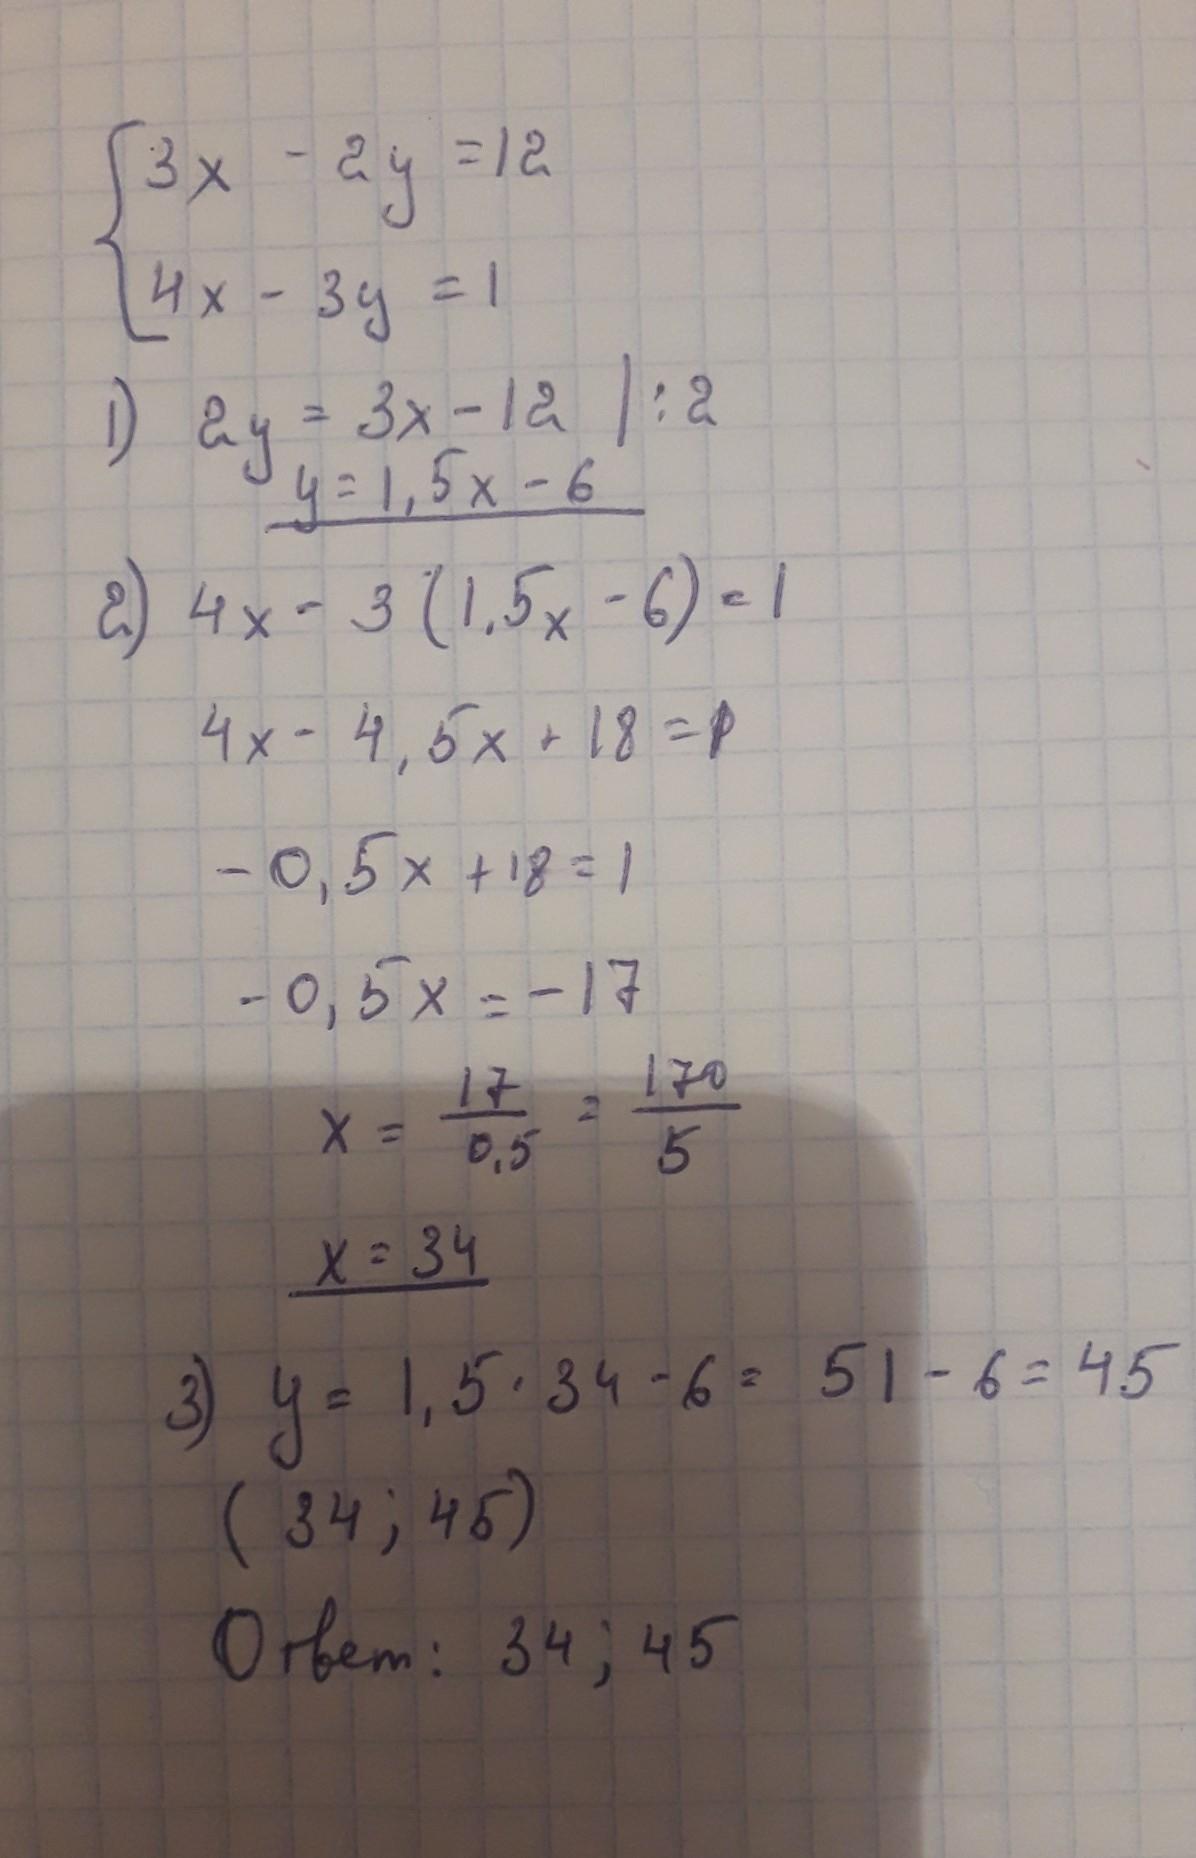 3x - 2y = 12
4x - 3y = 1
1) 2y = 3x - 12 | : 2
y = 1,5x - 6
2) 4x - 3 (1,5x - 6) = 1
4x - 4,5x + 18 = 1
- 0,5x + 18 = 1
- 0,5x = - 17
x = 17/0,5 = 170/5
x = 34
3) y = 1,5 · 34 - 6 = 51 - 6 = 45
(34; 45)
Ответ: 34; 45